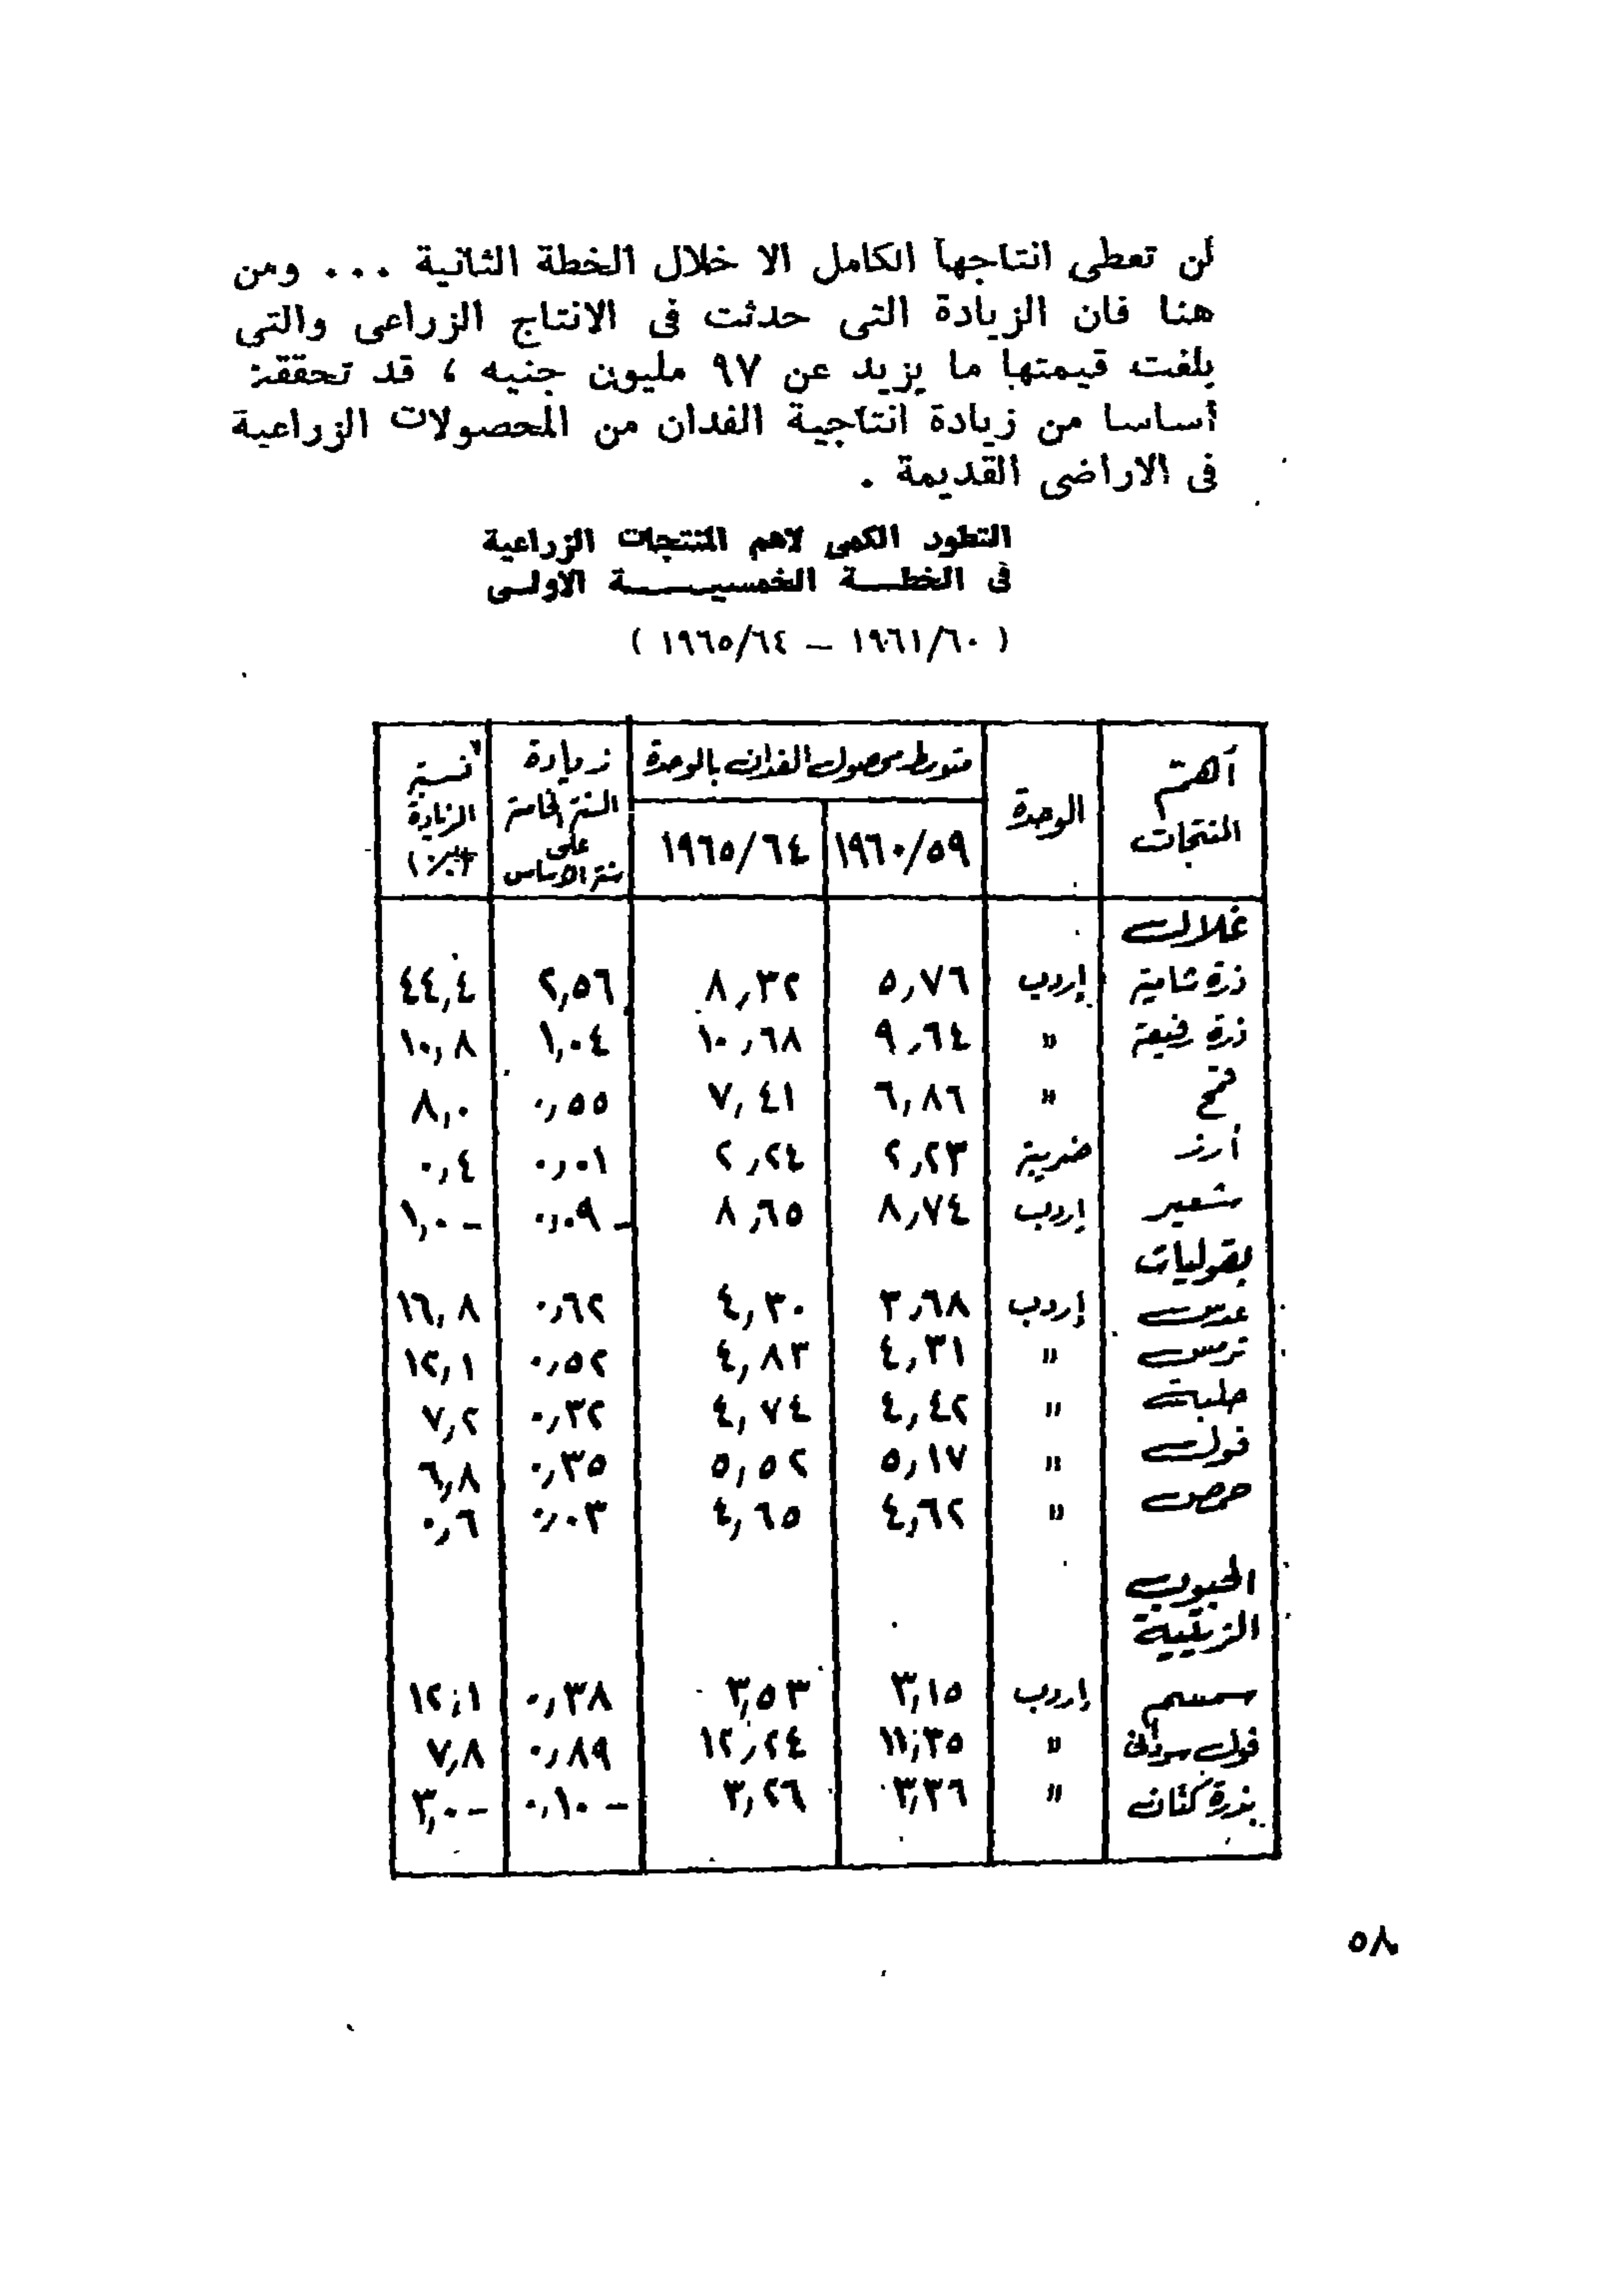 لن تعطى انتاجها الكامل الا خلال الخطة الثانية ... ومن
هنا فان الزيادة التى حدثت فى الانتاج الزراعى والتى
بلغت قيمتها ما يزيد عن ٩٧ مليون جنيه ، قد تحققت
أساسا من زيادة انتاجية الفدان من المحصولات الزراعية
فى الاراضى القديمة .
التطور الكمى لاهم المنتجات الزراعية
فى الخطـــة الخمسيــــــة الاولــى
( ١٩٦١/٦٠ – ١٩٦٥/٦٤ )
أهم المنتجات | الوحدة | متوسط محصول الفدان بالوحدة | زيادة السنة الخامسة على سنة الأساس | نسبة الزيادة
١٩٦٠/٥٩ | ١٩٦٥/٦٤
غلال
ذرة شامية | إردب | ٥,٧٦ | ٨,٣٢ | ٢,٥٦ | ٤٤,٤
ذرة رفيعة | " | ٩,٦٤ | ١٠,٦٨ | ١,٠٤ | ١٠,٨
قمح | " | ٦,٨٦ | ٧,٤١ | ٠,٥٥ | ٨,٠
أرز | ضريبة | ٢,٢٣ | ٢,٢٤ | ٠,٠١ | ٠,٤
شعير | إردب | ٨,٧٤ | ٨,٦٥ | – ٠,٠٩ | – ١,٠
بقوليات
عدس | إردب | ٣,٦٨ | ٤,٣٠ | ٠,٦٢ | ١٦,٨
ترمس | " | ٤,٣١ | ٤,٨٣ | ٠,٥٢ | ١٢,١
حلبة | " | ٤,٤٢ | ٤,٧٤ | ٠,٣٢ | ٧,٢
فول | " | ٥,١٧ | ٥,٥٢ | ٠,٣٥ | ٦,٨
حمص | " | ٤,٦٢ | ٤,٦٥ | ٠,٠٣ | ٠,٦
الحبوب
الزيتية
سمسم | إردب | ٣,١٥ | ٣,٥٣ | ٠,٣٨ | ١٢,١
فول سودانى | " | ١١,٣٥ | ١٢,٢٤ | ٠,٨٩ | ٧,٨
بذرة كتان | " | ٣,٣٦ | ٣,٢٦ | – ٠,١٠ | – ٣,٠
٥٨